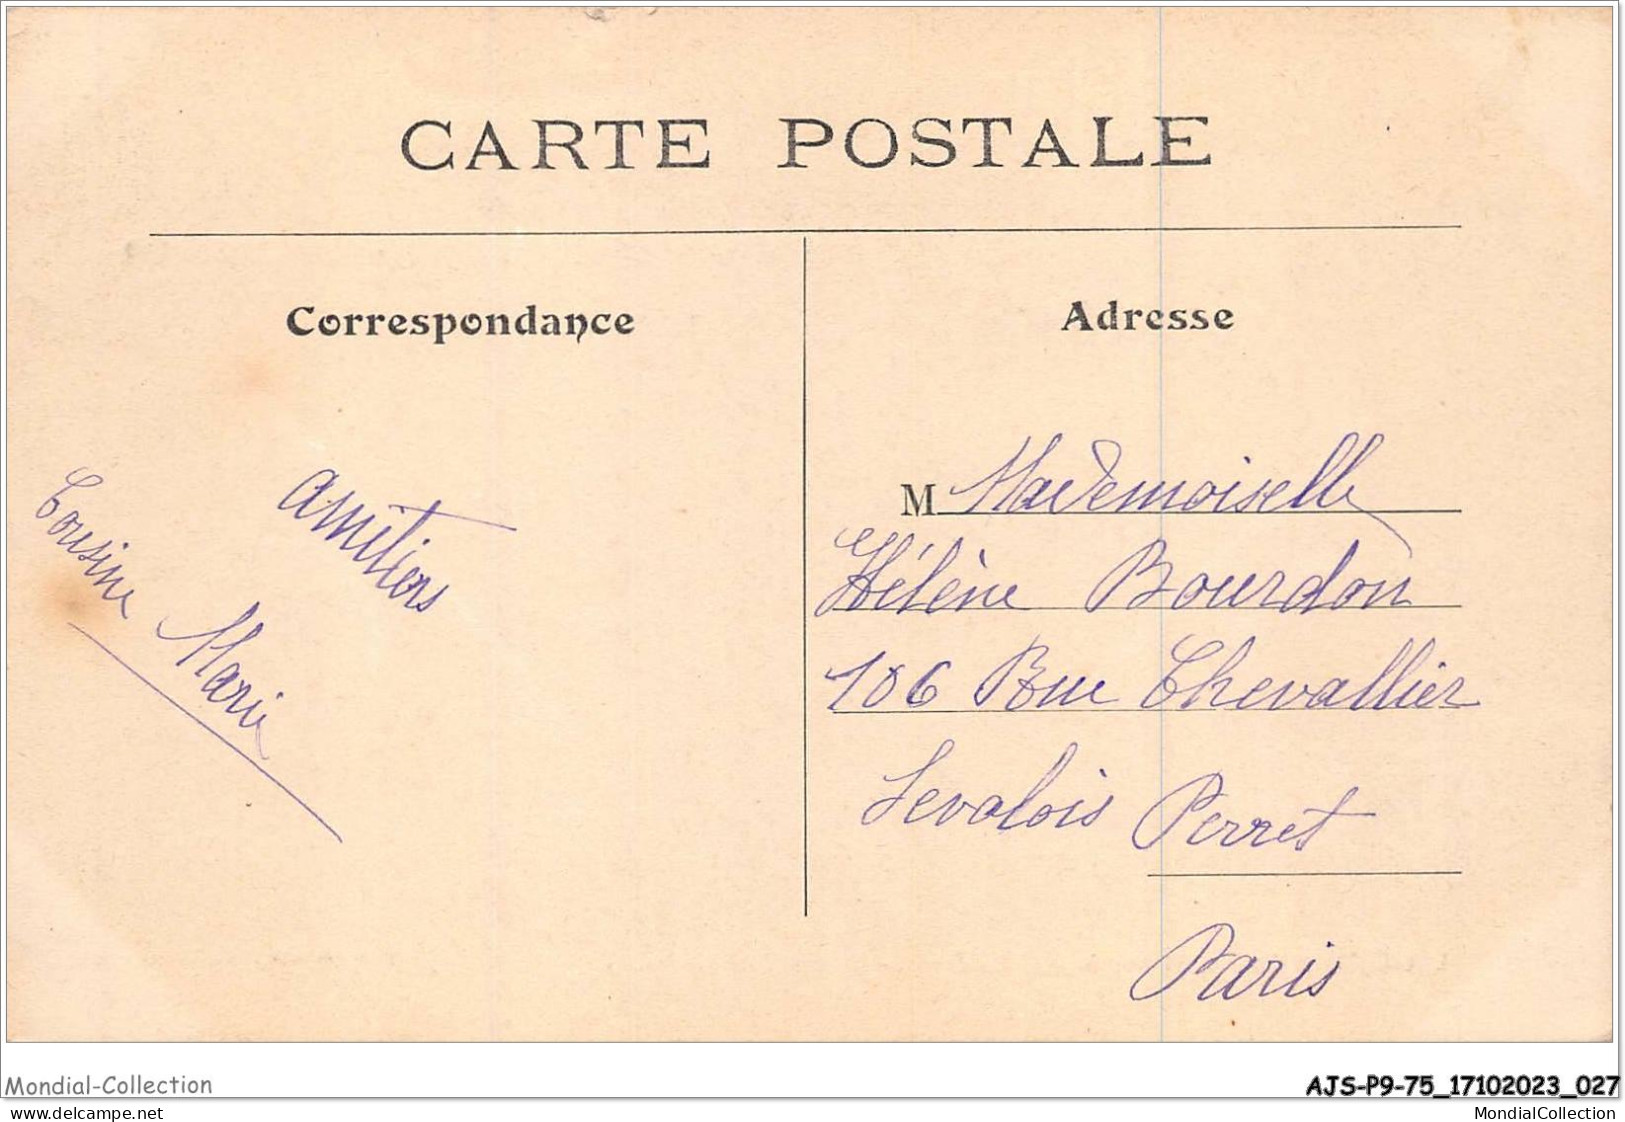 CARTE POSTALE
Correspondance
amitiers
Cousine Marie
Adresse
M Mademoiselle
Hélène Bourdon
106 Rue Chevallier
Levalois Perret
Paris
Mondial-Collection
AJS-P9-75_17102023_027
www.delcampe.net
MondialCollection